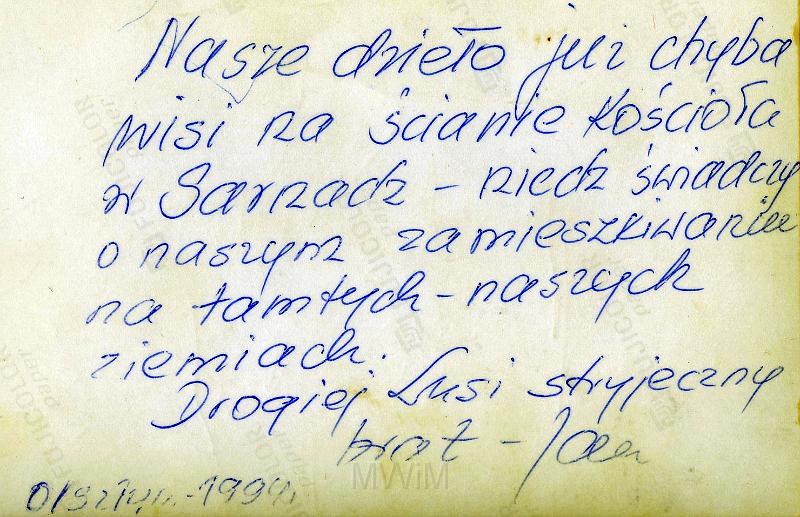 Nasze dzieło już chyba
wisi na ścianie Kościoła
w Sarnadz - niedz świadczy
o naszym zamieszkiwaniu
na tamtych - naszych
ziemiach.
Drogiej Lusi stryjeczny
brat - Jan
Olsztyn - 1994r
MWiM
FUJICOLOR
paper